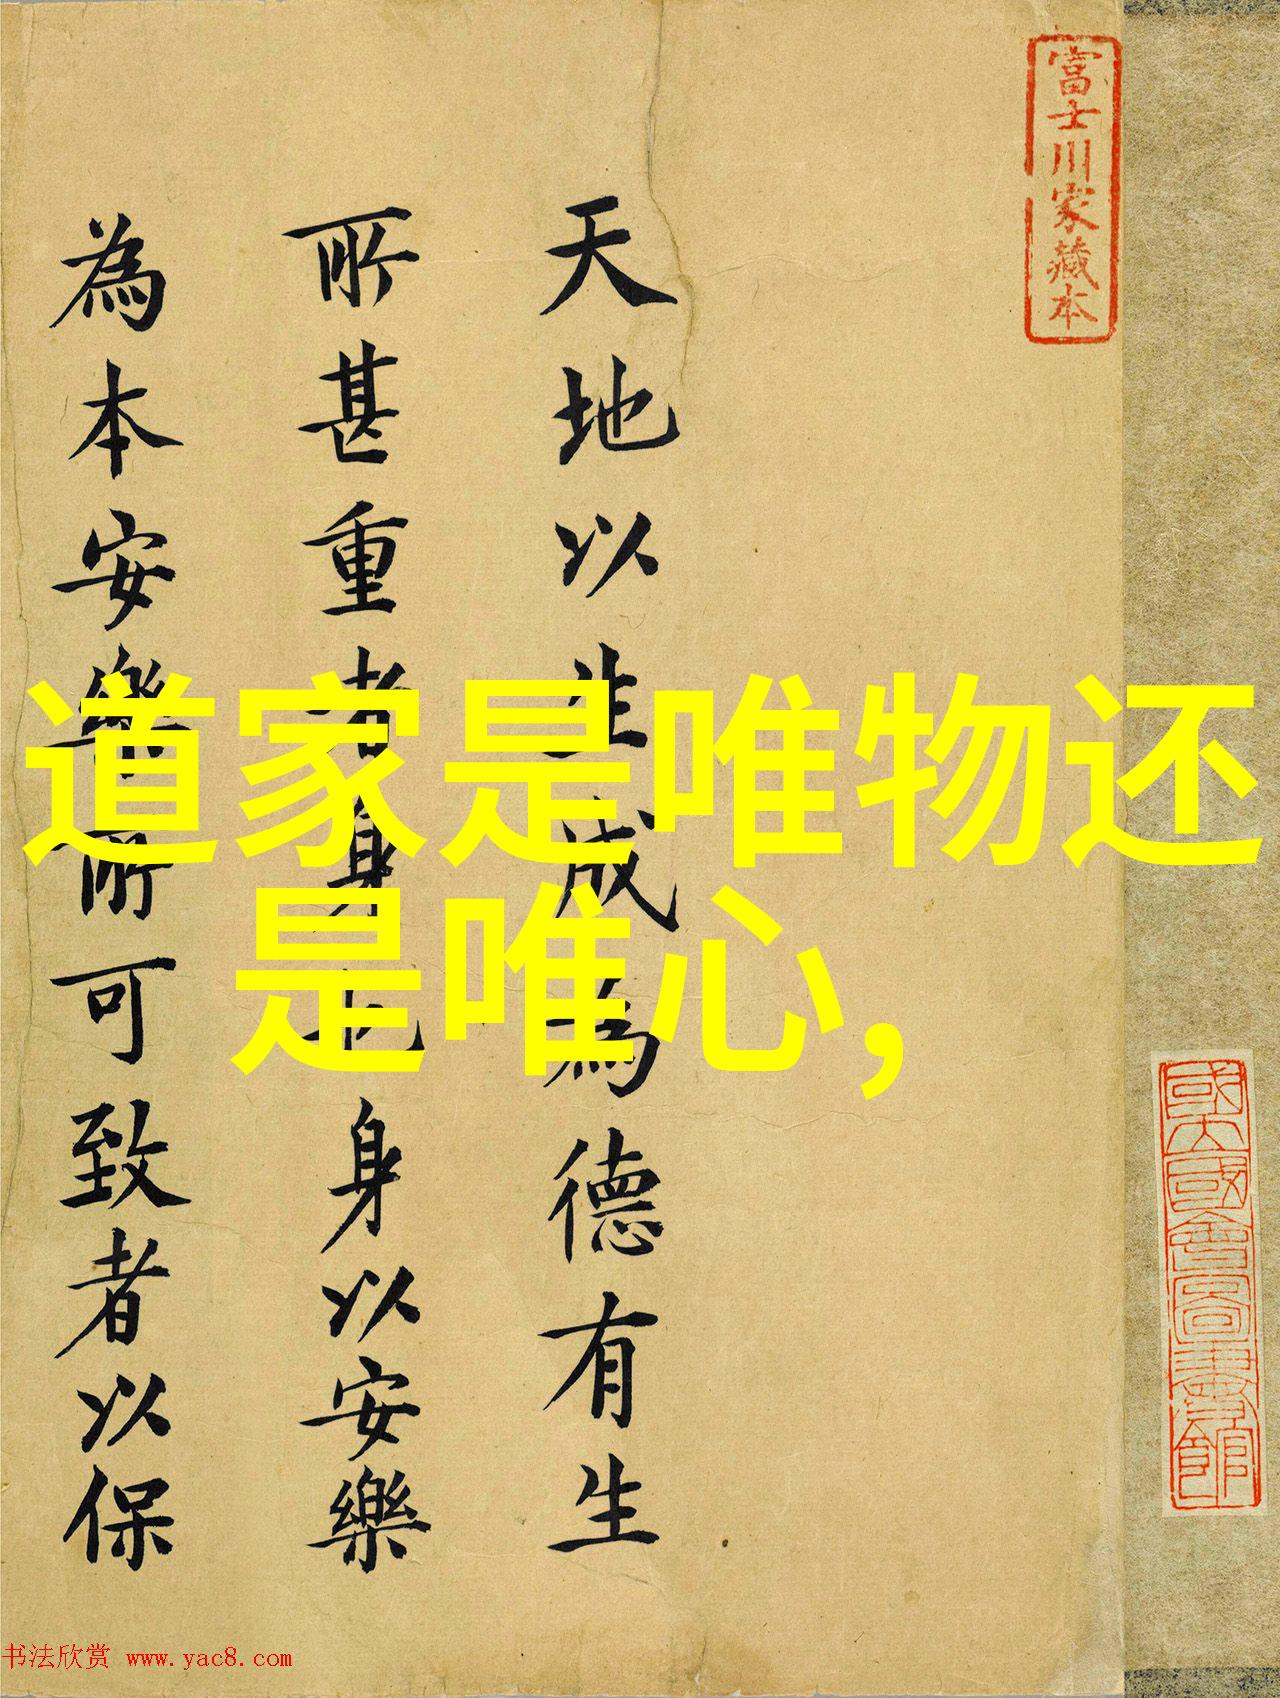 富士川家藏本
天地以生成為德有生
所甚重者身也身以安樂
為本安樂所可致者以保
道家是唯物还
是唯心,
國立國會圖書館
书法欣赏 www.yac8.com